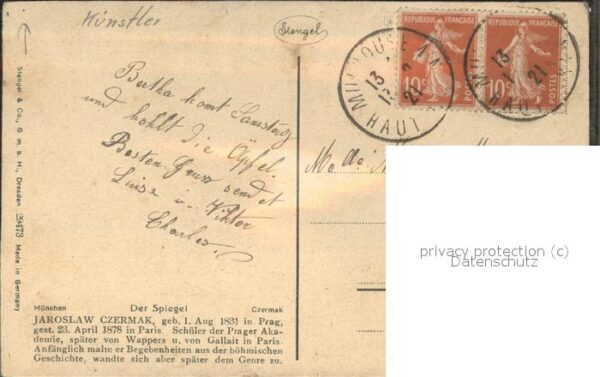 Künstler
Stengel
REPUBLIQUE FRANÇAISE
REPUBLIQUE FRANÇAISE
10c
10c
POSTES
13
21
HAUT
13
21
Bertha komt Samstag
und hohlt die Äpfel.
Besten Gruss sendet
Luise u. Viktor
Charles.
Stengel & Co., G. m. b. H., Dresden 29473 Made in Germany
privacy protection (c)
Datenschutz
München Der Spiegel Czermak
JAROSLAW CZERMAK, geb. 1. Aug 1831 in Prag,
gest. 23. April 1878 in Paris. Schüler der Prager Aka-
demie, später von Wappers u. von Gallait in Paris.
Anfänglich malte er Begebenheiten aus der böhmischen
Geschichte, wandte sich aber später dem Genre zu.